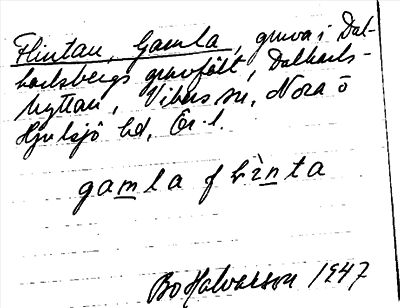 Flintan, Gamla, gruva i Dal-
karlsbergs gruvfält, Dalkarls-
hyttan, Vikers sn, Nora o
Hjulsjö bd, Ör. l.
gamla flinta
Bo Halvarson 1947